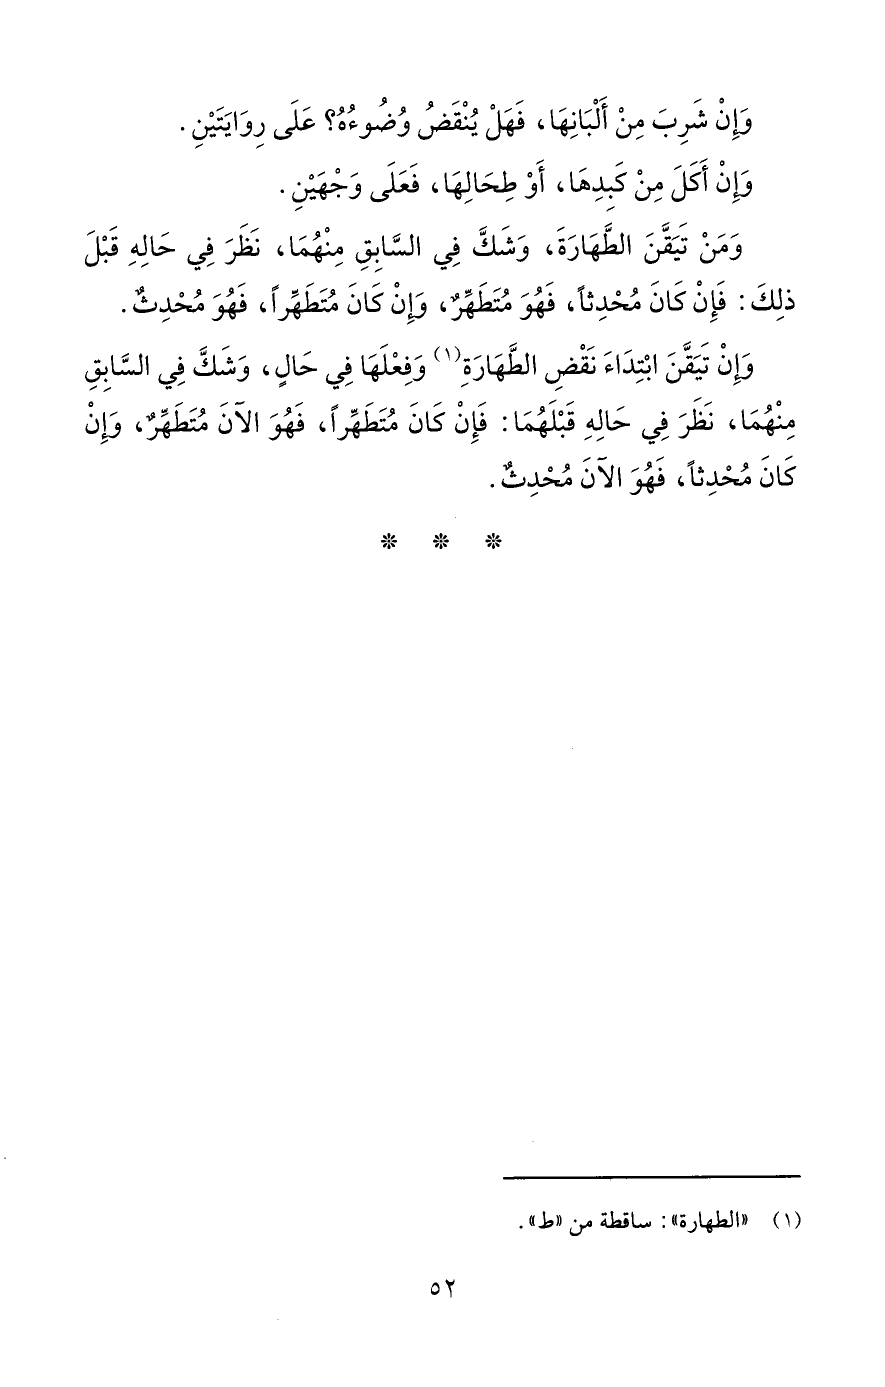 وَإِنْ شَرِبَ مِنْ أَلْبَانِهَا، فَهَلْ يُنْقَضُ وُضُوءُهُ؟ عَلَى رِوَايَتَيْنِ.
وَإِنْ أَكَلَ مِنْ كَبِدِهَا، أَوْ طِحَالِهَا، فَعَلَى وَجْهَيْنِ.
وَمَنْ تَيَقَّنَ الطَّهَارَةَ، وَشَكَّ فِي السَّابِقِ مِنْهُمَا، نَظَرَ فِي حَالِهِ قَبْلَ
ذلِكَ: فَإِنْ كَانَ مُحْدِثاً، فَهُوَ مُتَطَهِّرٌ، وَإِنْ كَانَ مُتَطَهِّراً، فَهُوَ مُحْدِثٌ.
وَإِنْ تَيَقَّنَ ابْتِدَاءَ نَقْضِ الطَّهَارَةِ(١) وَفِعْلَهَا فِي حَالٍ، وَشَكَّ فِي السَّابِقِ
مِنْهُمَا، نَظَرَ فِي حَالِهِ قَبْلَهُمَا: فَإِنْ كَانَ مُتَطَهِّراً، فَهُوَ الآنَ مُتَطَهِّرٌ، وَإِنْ
كَانَ مُحْدِثاً، فَهُوَ الآنَ مُحْدِثٌ.
* * *
(١) «الطهارة»: ساقطة من «ط».
٥٢